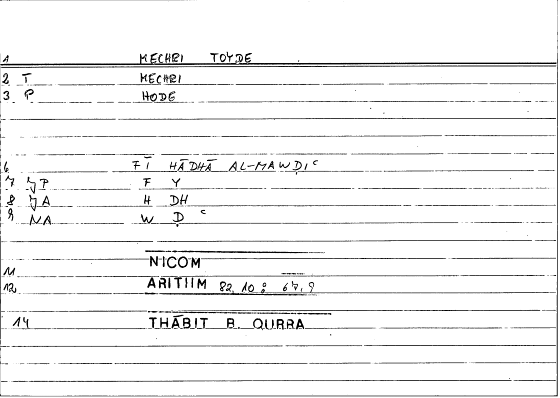 1 MECHRI TOYDE
2 T MECHRI
3 P HODE
6 FĪ HĀDHĀ AL-MAWḌIʿ
7 YP F Y
8 YA H DH
9 NA W Ḍ ʿ
NICOM
11
12 ARITIIM 82,10; 67,9
14 THĀBIT B. QURRA